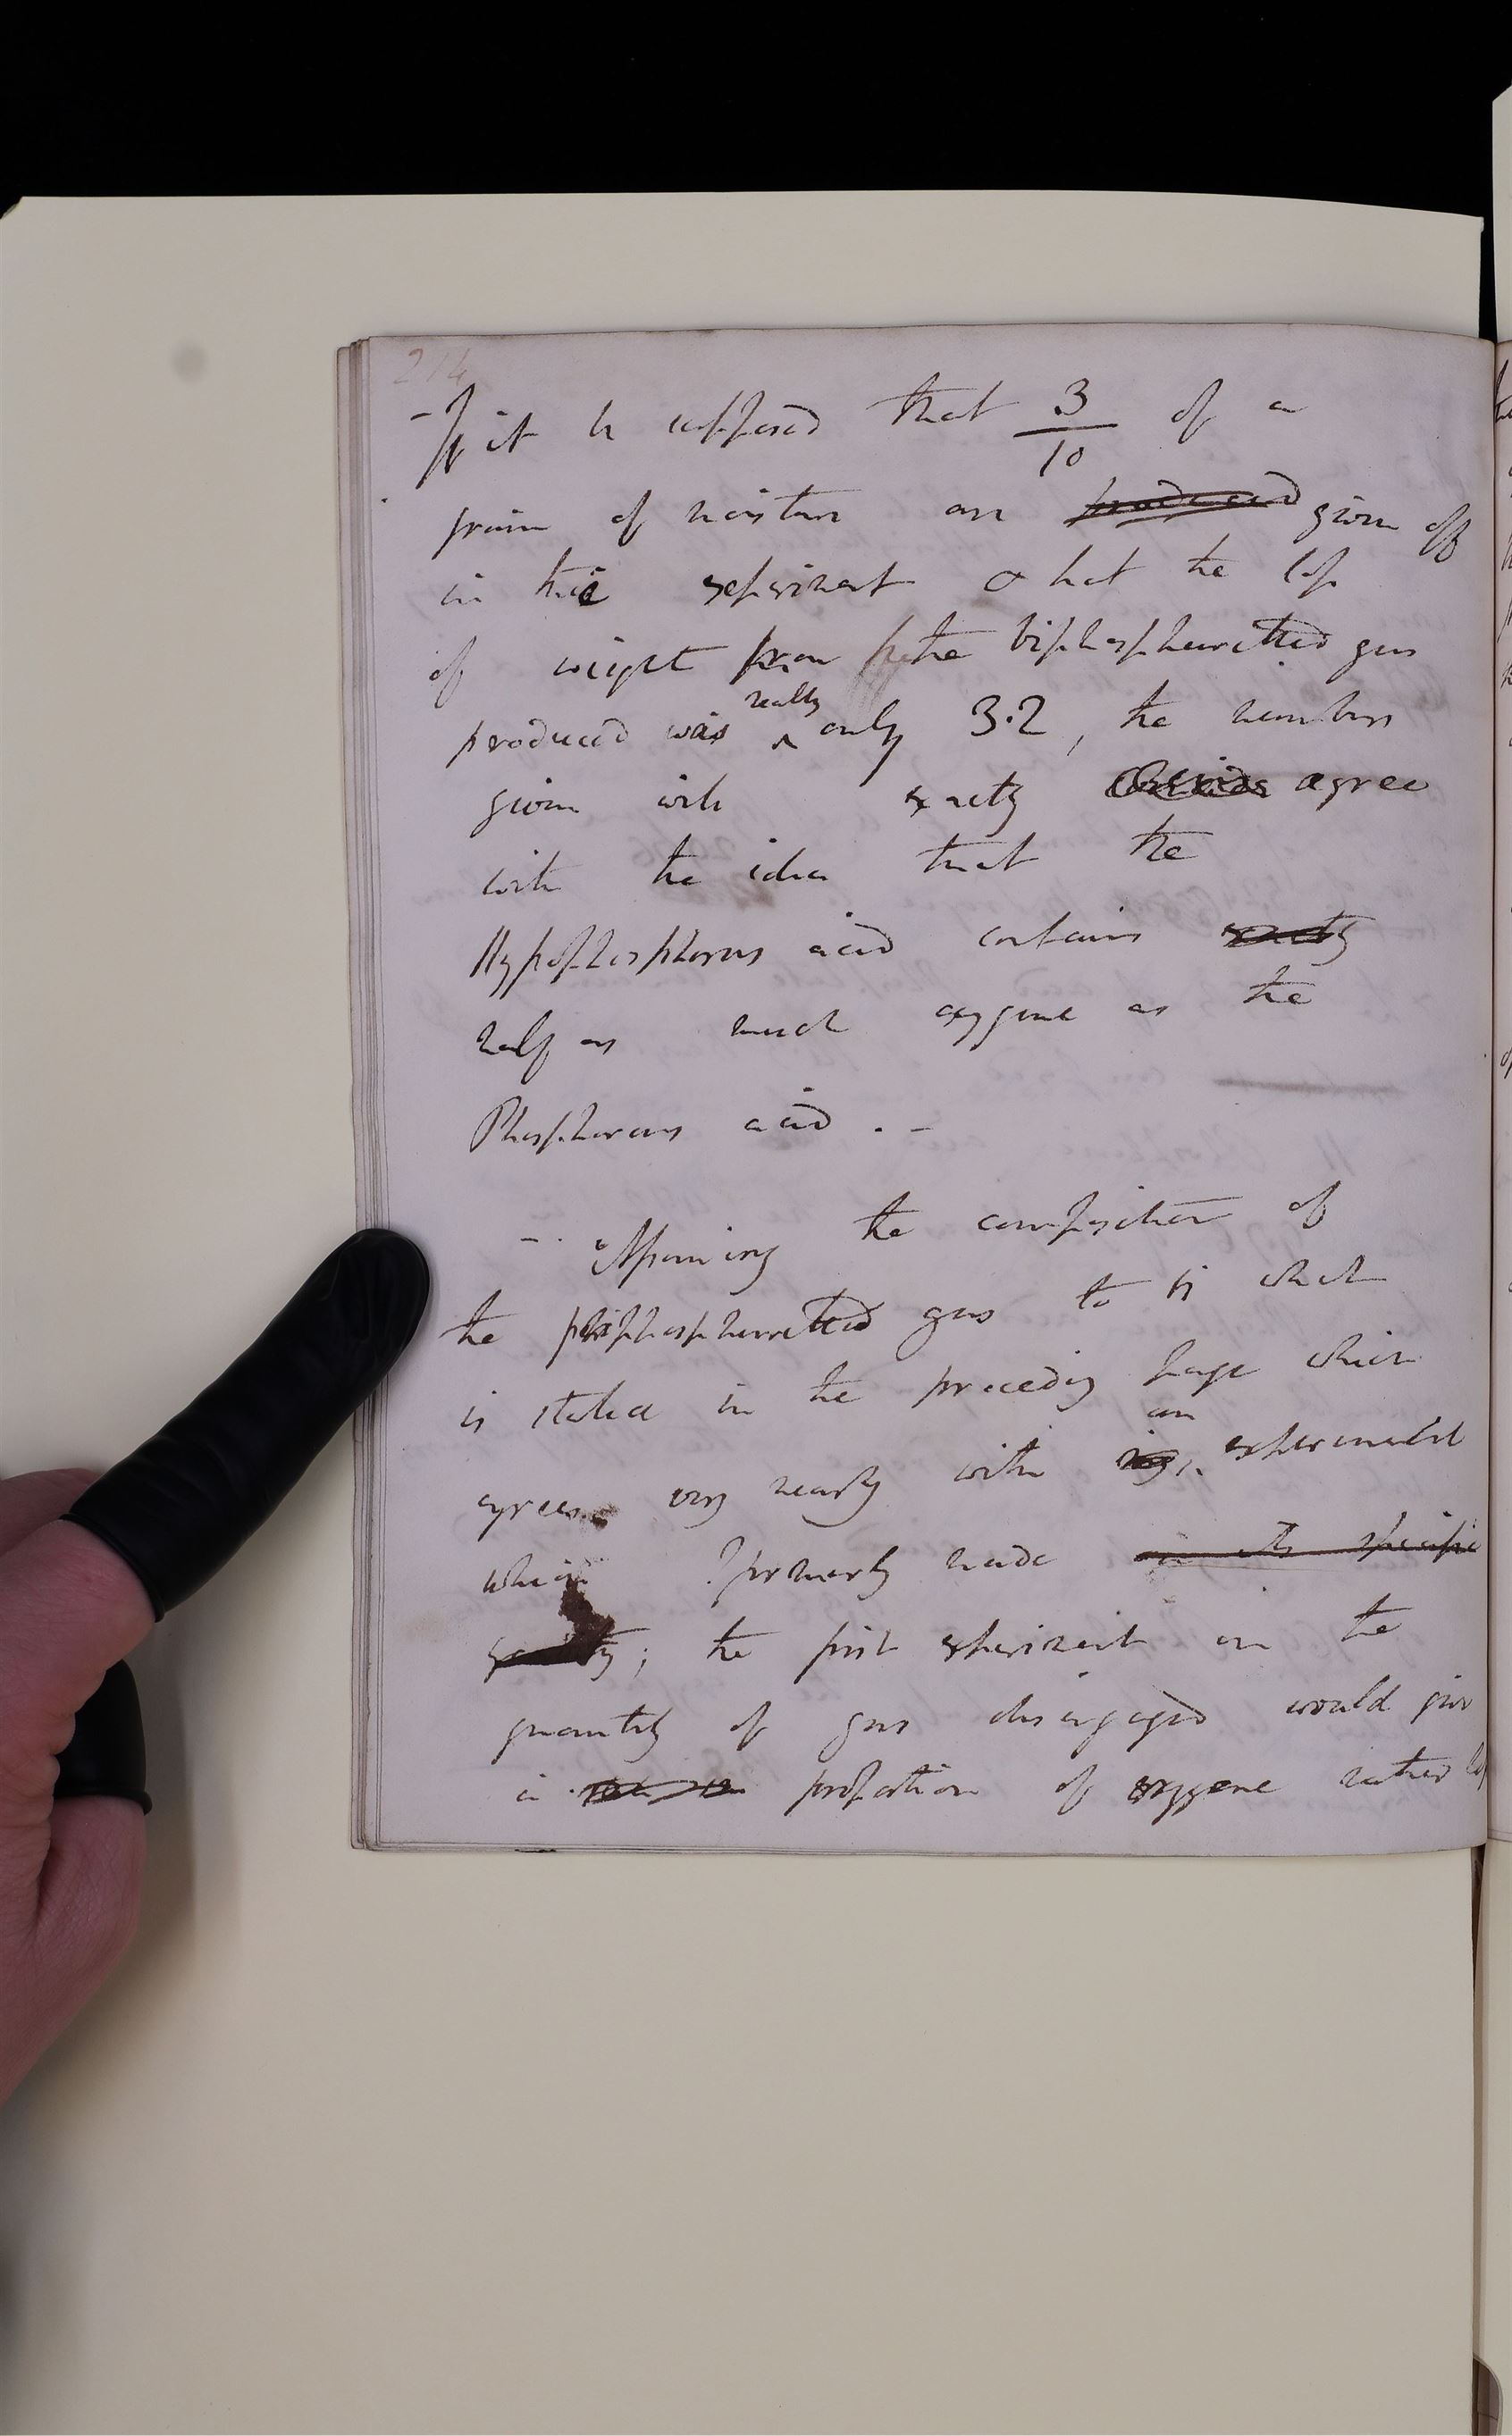 214
- If it be supposed that 3/10 of a
grain of moisture are produced given off
in this experiment & that the loss
of weight from the biphosphuretted gas
produced was really only 3.2, the numbers
given will exactly agree
with the idea that the
Hypophosphorus acid contains exactly
half as much oxygene as the
Phosphorous acid . -
- . Assuming the composition of
the phosphuretted gas to be what
is stated in the preceding page which
agrees very nearly with an experiment
which I formerly made on its specific
gravity; the first experiment on the
quantity of gas disengaged would give
a proportion of oxygene rather